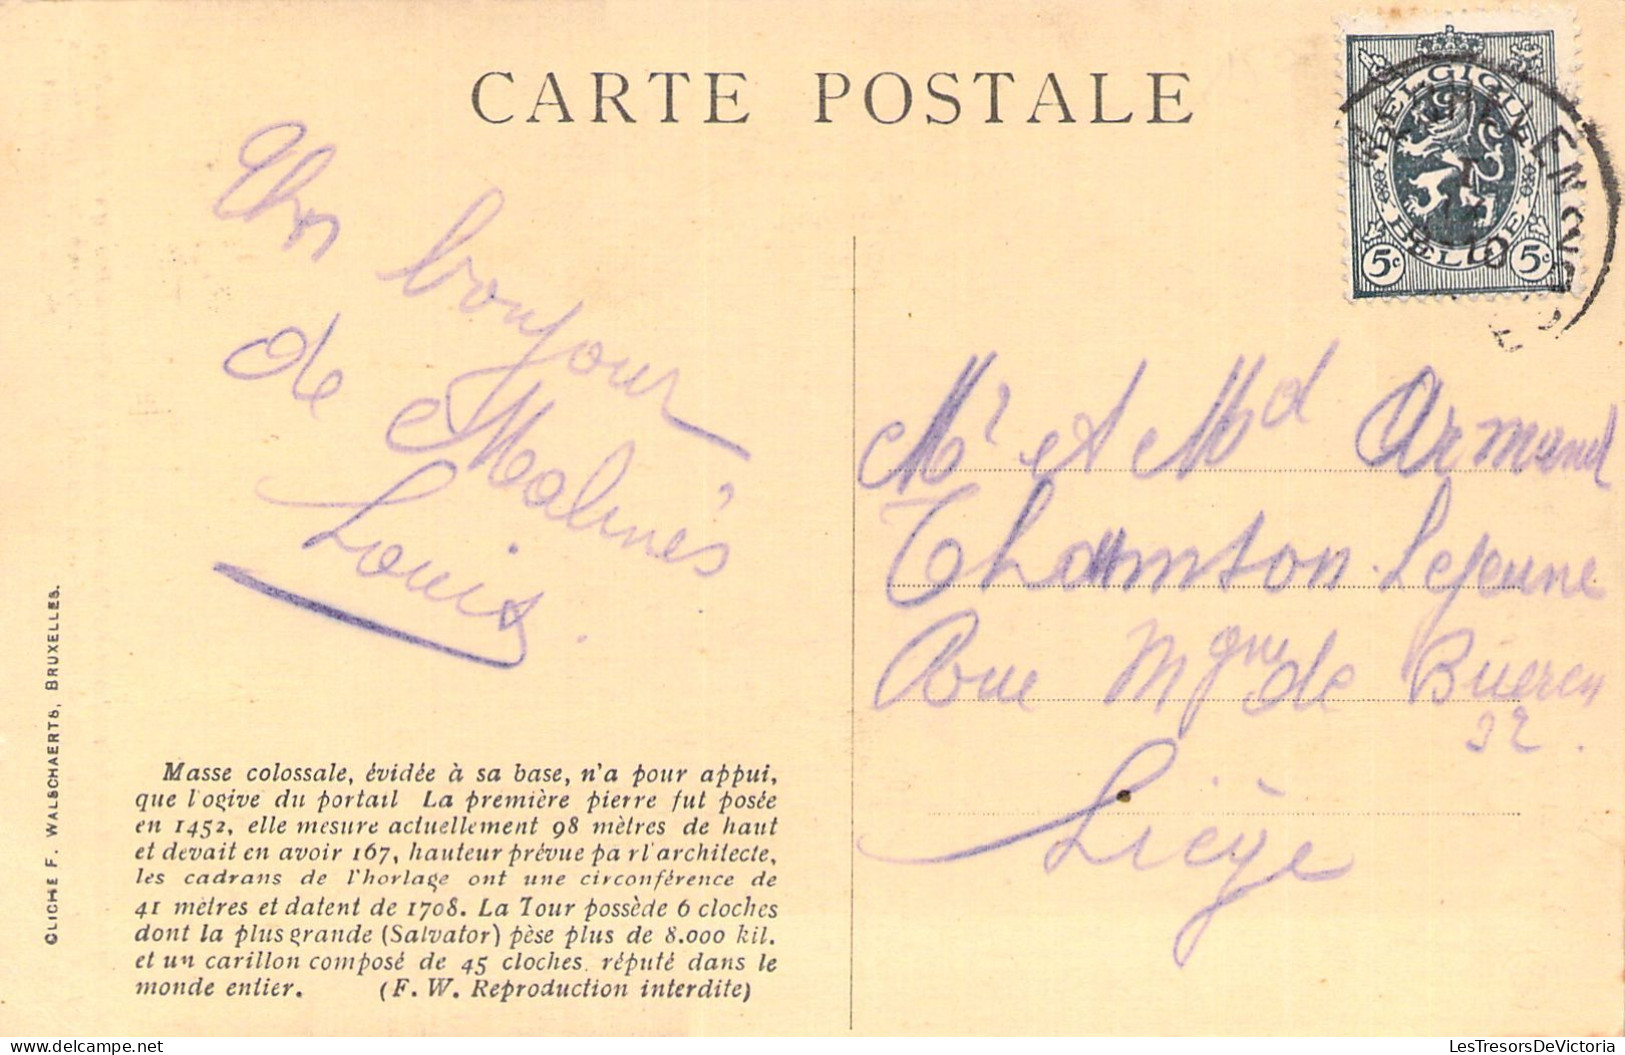 CARTE POSTALE
BELGIQUE
5c BELGIË 5c
MECHELEN
Un bonjour
de Malines
Louis.
Mr et Md Armand
Thomson-Lejeune
Rue Mgne de Bueren
32.
Liège
Masse colossale, évidée à sa base, n'a pour appui,
que l'ogive du portail La première pierre fut posée
en 1452, elle mesure actuellement 98 mètres de haut
et devait en avoir 167, hauteur prévue pa rl'architecte,
les cadrans de l'horlage ont une circonférence de
41 mètres et datent de 1708. La Tour possède 6 cloches
dont la plus grande (Salvator) pèse plus de 8.000 kil.
et un carillon composé de 45 cloches réputé dans le
monde entier. (F. W. Reproduction interdite)
CLICHÉ F. WALSCHAERTS, BRUXELLES.
LesTresorsDeVictoria